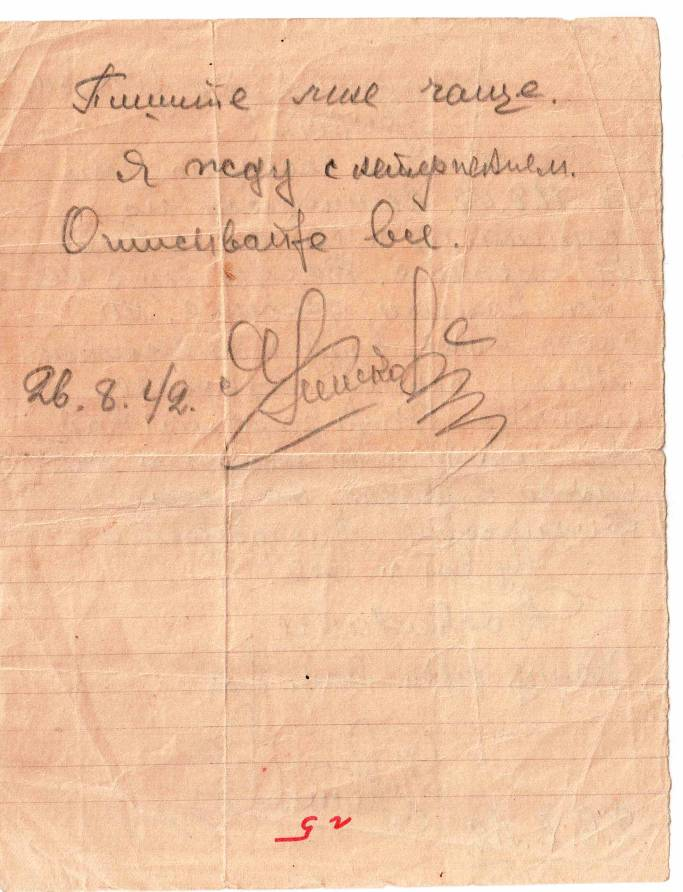 Пишите мне чаще.
Я жду с нетерпением.
Описывайте все.
26. 8. 42.